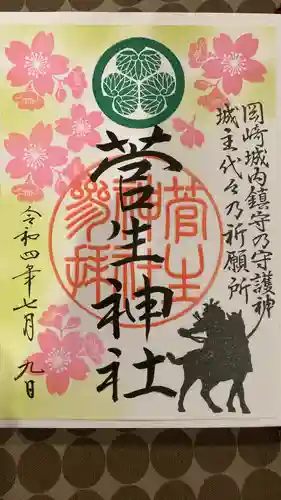 岡崎城内鎮守乃守護神
城主代々乃祈願所
菅生神社
菅生
神社
参拝
令和四年七月九日